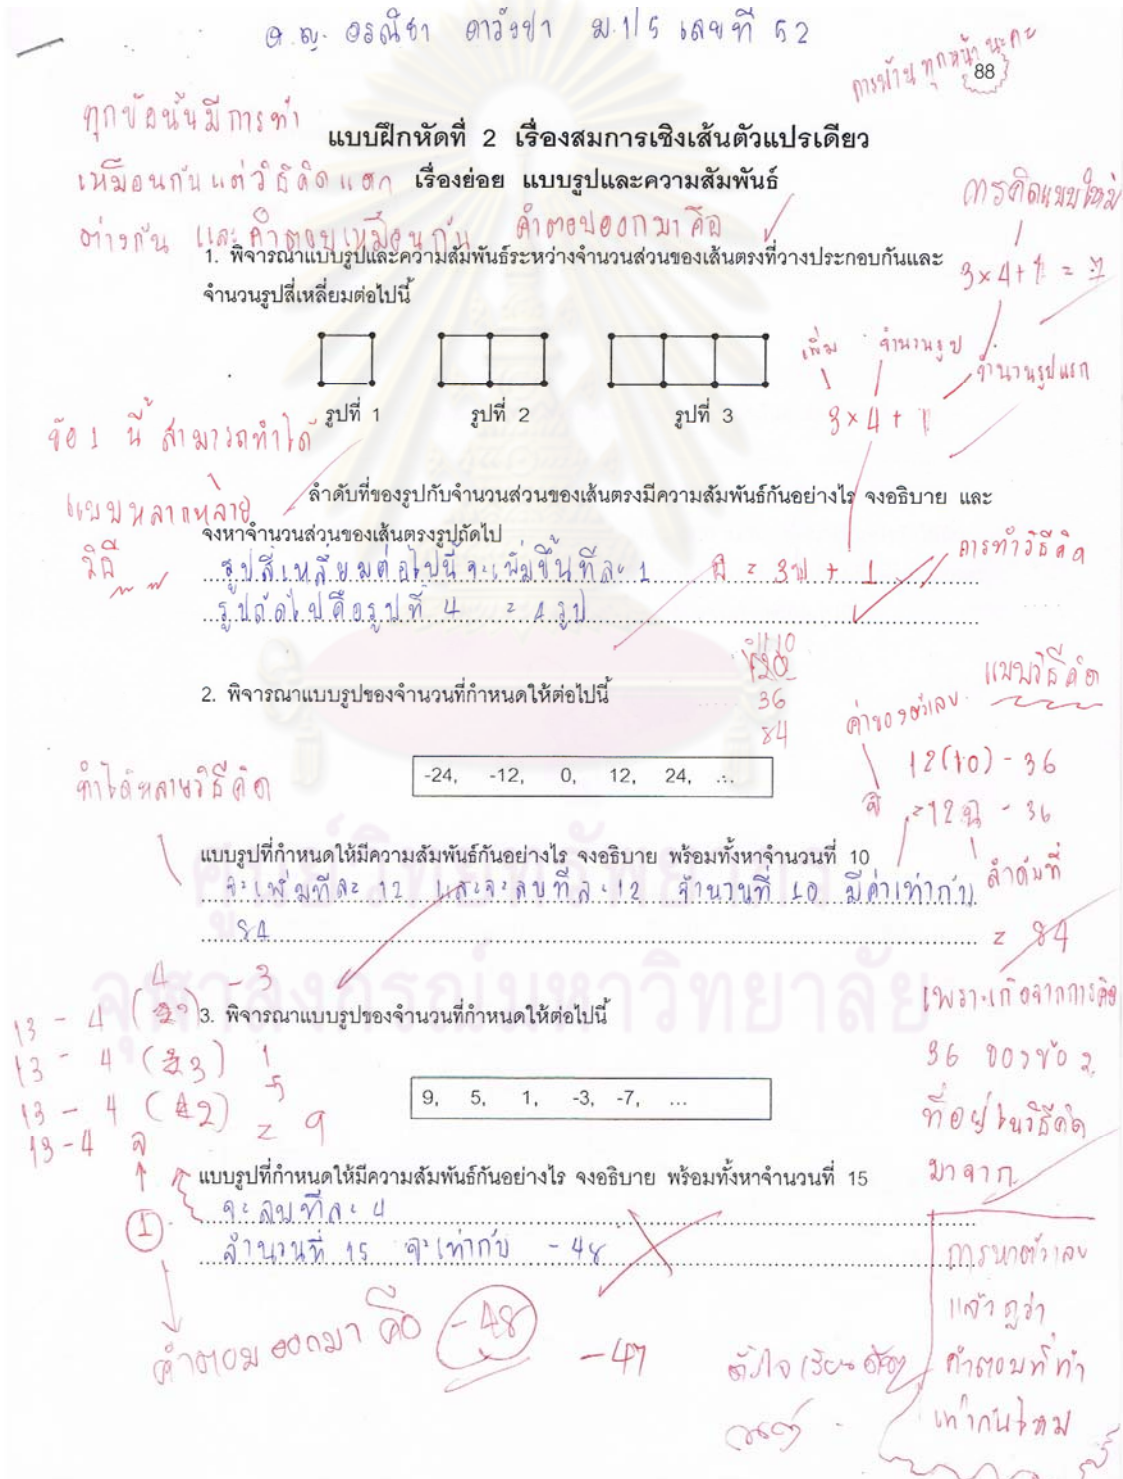 ด.ญ. อรณิชา ดาวังปา ม.1/5 เลขที่ 52
การบ้าน ทุกหน้า นะคะ
88
ทุกข้อนั้นมีการทำ
เหมือนกันแต่วิธีคิดแตก
ต่างกัน และคำตอบเหมือนกัน คำตอบออกมาคือ
แบบฝึกหัดที่ 2 เรื่องสมการเชิงเส้นตัวแปรเดียว
เรื่องย่อย แบบรูปและความสัมพันธ์
การคิดแบบใหม่
1. พิจารณาแบบรูปและความสัมพันธ์ระหว่างจำนวนส่วนของเส้นตรงที่วางประกอบกันและ
จำนวนรูปสี่เหลี่ยมต่อไปนี้
รูปที่ 1 รูปที่ 2 รูปที่ 3
เพิ่ม จำนวนรูป
จำนวนรูปแรก
3 × 4 + 1
ข้อ 1 นี้ สามารถทำได้
แบบหลากหลาย
วิธี
ลำดับที่ของรูปกับจำนวนส่วนของเส้นตรงมีความสัมพันธ์กันอย่างไร จงอธิบาย และ
จงหาจำนวนส่วนของเส้นตรงรูปถัดไป
รูปสี่เหลี่ยมต่อไปนี้จะเพิ่มขึ้นทีละ 1
การทำวิธีคิด
รูปถัดไปคือรูปที่ 4 = 4 รูป
2. พิจารณาแบบรูปของจำนวนที่กำหนดให้ต่อไปนี้
36
84
แบบวิธีคิด
ค่าของตัวเลข
12(10) - 36
ทำได้หลายวิธีคิด
-24, -12, 0, 12, 24, ...
แบบรูปที่กำหนดให้มีความสัมพันธ์กันอย่างไร จงอธิบาย พร้อมทั้งหาจำนวนที่ 10
ลำดับที่
จะเพิ่มทีละ 12 และจะลบทีละ 12 จำนวนที่ 10 มีค่าเท่ากับ
84
= 84
ศูนย์วิทยทรัพยากร
จุฬาลงกรณ์มหาวิทยาลัย
3. พิจารณาแบบรูปของจำนวนที่กำหนดให้ต่อไปนี้
36 ของข้อ 2
ที่อยู่ในวิธีคิด
มาจาก
9, 5, 1, -3, -7, ...
แบบรูปที่กำหนดให้มีความสัมพันธ์กันอย่างไร จงอธิบาย พร้อมทั้งหาจำนวนที่ 15
จะลบทีละ 4
จำนวนที่ 15 จะเท่ากับ -48
1
คำตอบออกมา คือ -48
-47
การหาตัวเลข
แล้วดูว่า
คำตอบที่ทำ
เท่ากันไหม